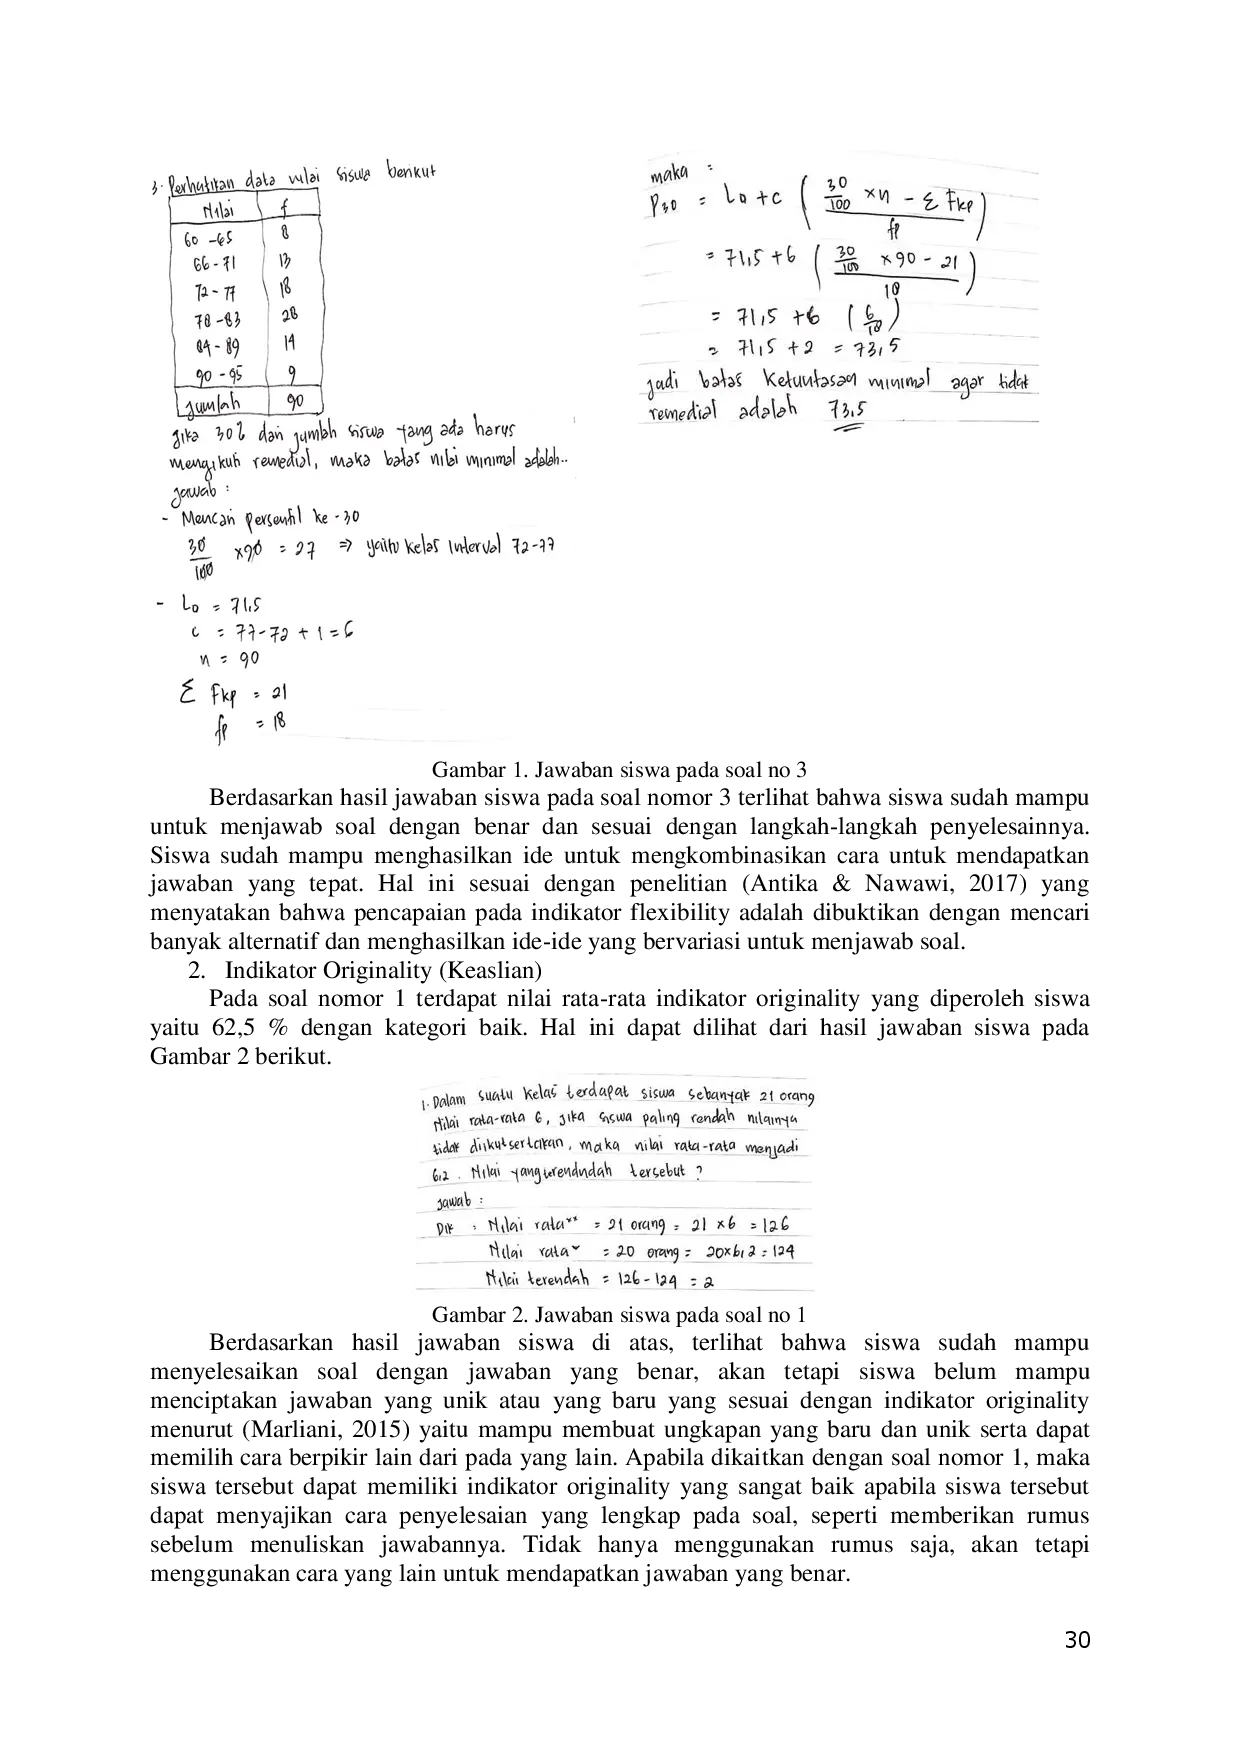 3. Perhatikan data nilai siswa berikut
Nilai f
60 - 65 8
66 - 71 13
72 - 77 18
78 - 83 28
84 - 89 14
90 - 95 9
Jumlah 90
Jika 30% dari jumlah siswa yang ada harus
mengikuti remedial, maka batas nilai minimal adalah..
Jawab :
- Mencari persentil ke - 30
30/100 × 90 = 27 ⇒ yaitu kelas interval 72 - 77
- Lo = 71,5
c = 77 - 72 + 1 = 6
n = 90
Σ Fkp = 21
fp = 18
maka :
P30 = Lo + c ( (30/100 × n - Σ Fkp) / fp )
= 71,5 + 6 ( (30/100 × 90 - 21) / 18 )
= 71,5 + 6 ( 6/18 )
= 71,5 + 2 = 73,5
Jadi batas Ketuntasan minimal agar tidak
remedial adalah 73,5
Gambar 1. Jawaban siswa pada soal no 3
Berdasarkan hasil jawaban siswa pada soal nomor 3 terlihat bahwa siswa sudah mampu
untuk menjawab soal dengan benar dan sesuai dengan langkah-langkah penyelesainnya.
Siswa sudah mampu menghasilkan ide untuk mengkombinasikan cara untuk mendapatkan
jawaban yang tepat. Hal ini sesuai dengan penelitian (Antika & Nawawi, 2017) yang
menyatakan bahwa pencapaian pada indikator flexibility adalah dibuktikan dengan mencari
banyak alternatif dan menghasilkan ide-ide yang bervariasi untuk menjawab soal.
2. Indikator Originality (Keaslian)
Pada soal nomor 1 terdapat nilai rata-rata indikator originality yang diperoleh siswa
yaitu 62,5 % dengan kategori baik. Hal ini dapat dilihat dari hasil jawaban siswa pada
Gambar 2 berikut.
1. Dalam suatu kelas terdapat siswa sebanyak 21 orang
Nilai rata-rata 6, jika siswa paling rendah nilainya
tidak diikutsertakan, maka nilai rata-rata menjadi
6,2 . Nilai yang terendndah tersebut ?
Jawab :
Dik : Nilai rata** = 21 orang = 21 × 6 = 126
Nilai rata = 20 orang = 20×6,2 = 124
Nilai terendah = 126 - 124 = 2
Gambar 2. Jawaban siswa pada soal no 1
Berdasarkan hasil jawaban siswa di atas, terlihat bahwa siswa sudah mampu
menyelesaikan soal dengan jawaban yang benar, akan tetapi siswa belum mampu
menciptakan jawaban yang unik atau yang baru yang sesuai dengan indikator originality
menurut (Marliani, 2015) yaitu mampu membuat ungkapan yang baru dan unik serta dapat
memilih cara berpikir lain dari pada yang lain. Apabila dikaitkan dengan soal nomor 1, maka
siswa tersebut dapat memiliki indikator originality yang sangat baik apabila siswa tersebut
dapat menyajikan cara penyelesaian yang lengkap pada soal, seperti memberikan rumus
sebelum menuliskan jawabannya. Tidak hanya menggunakan rumus saja, akan tetapi
menggunakan cara yang lain untuk mendapatkan jawaban yang benar.
30